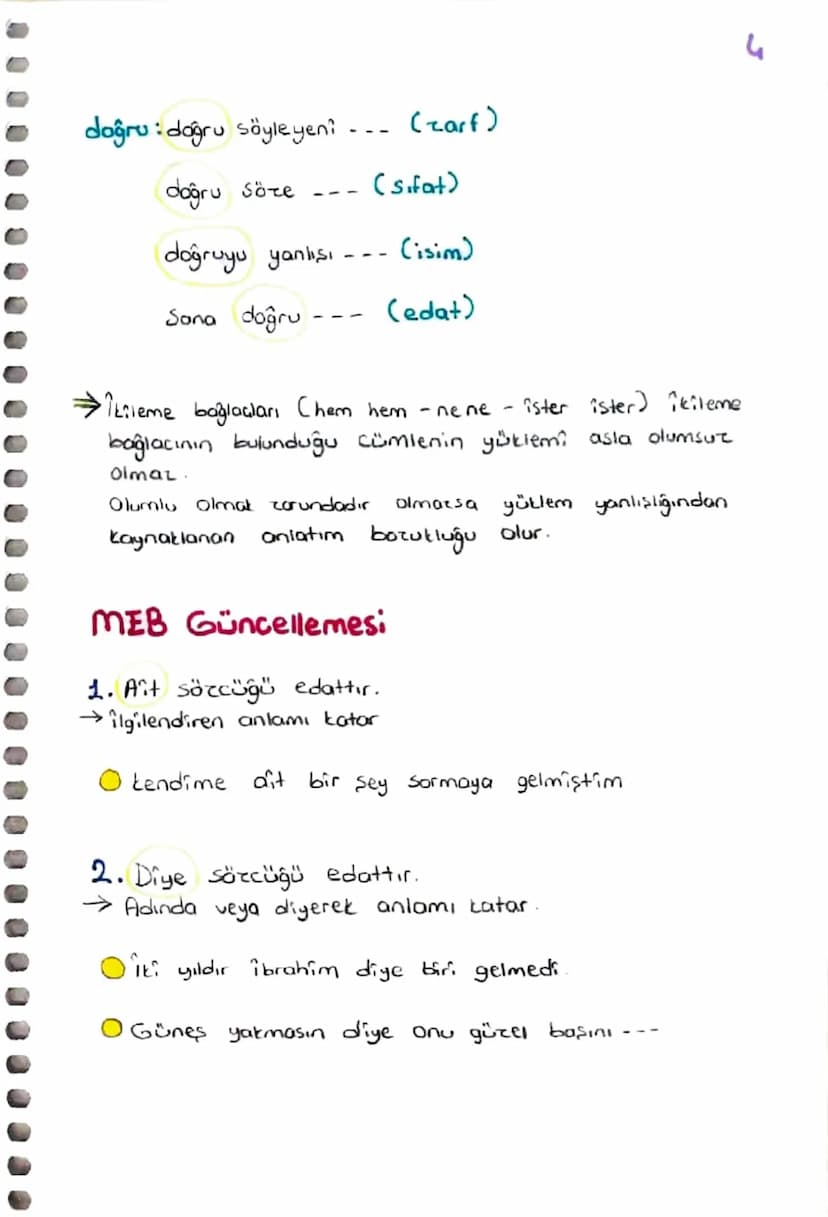 4
doğru: doğru söyleyeni --- (zarf)
doğru söze --- (sıfat)
doğruyu yanlışı --- (isim)
Sona doğru --- (edat)
⇒ İkileme bağlaçları (hem hem - ne ne - ister ister) ikileme
bağlacının bulunduğu cümlenin yüklemi asla olumsuz
olmaz.
Olumlu olmak zorundadır olmazsa yüklem yanlışlığından
kaynaklanan anlatım bozukluğu olur.
MEB Güncellemesi
1. Ait sözcüğü edattır.
→ ilgilendiren anlamı katar
kendime ait bir şey sormaya gelmiştim
2. Diye sözcüğü edattır.
→ Adında veya diyerek anlamı katar.
İki yıldır ibrahim diye biri gelmedi.
Güneş yakmasın diye onu güzel başını ---